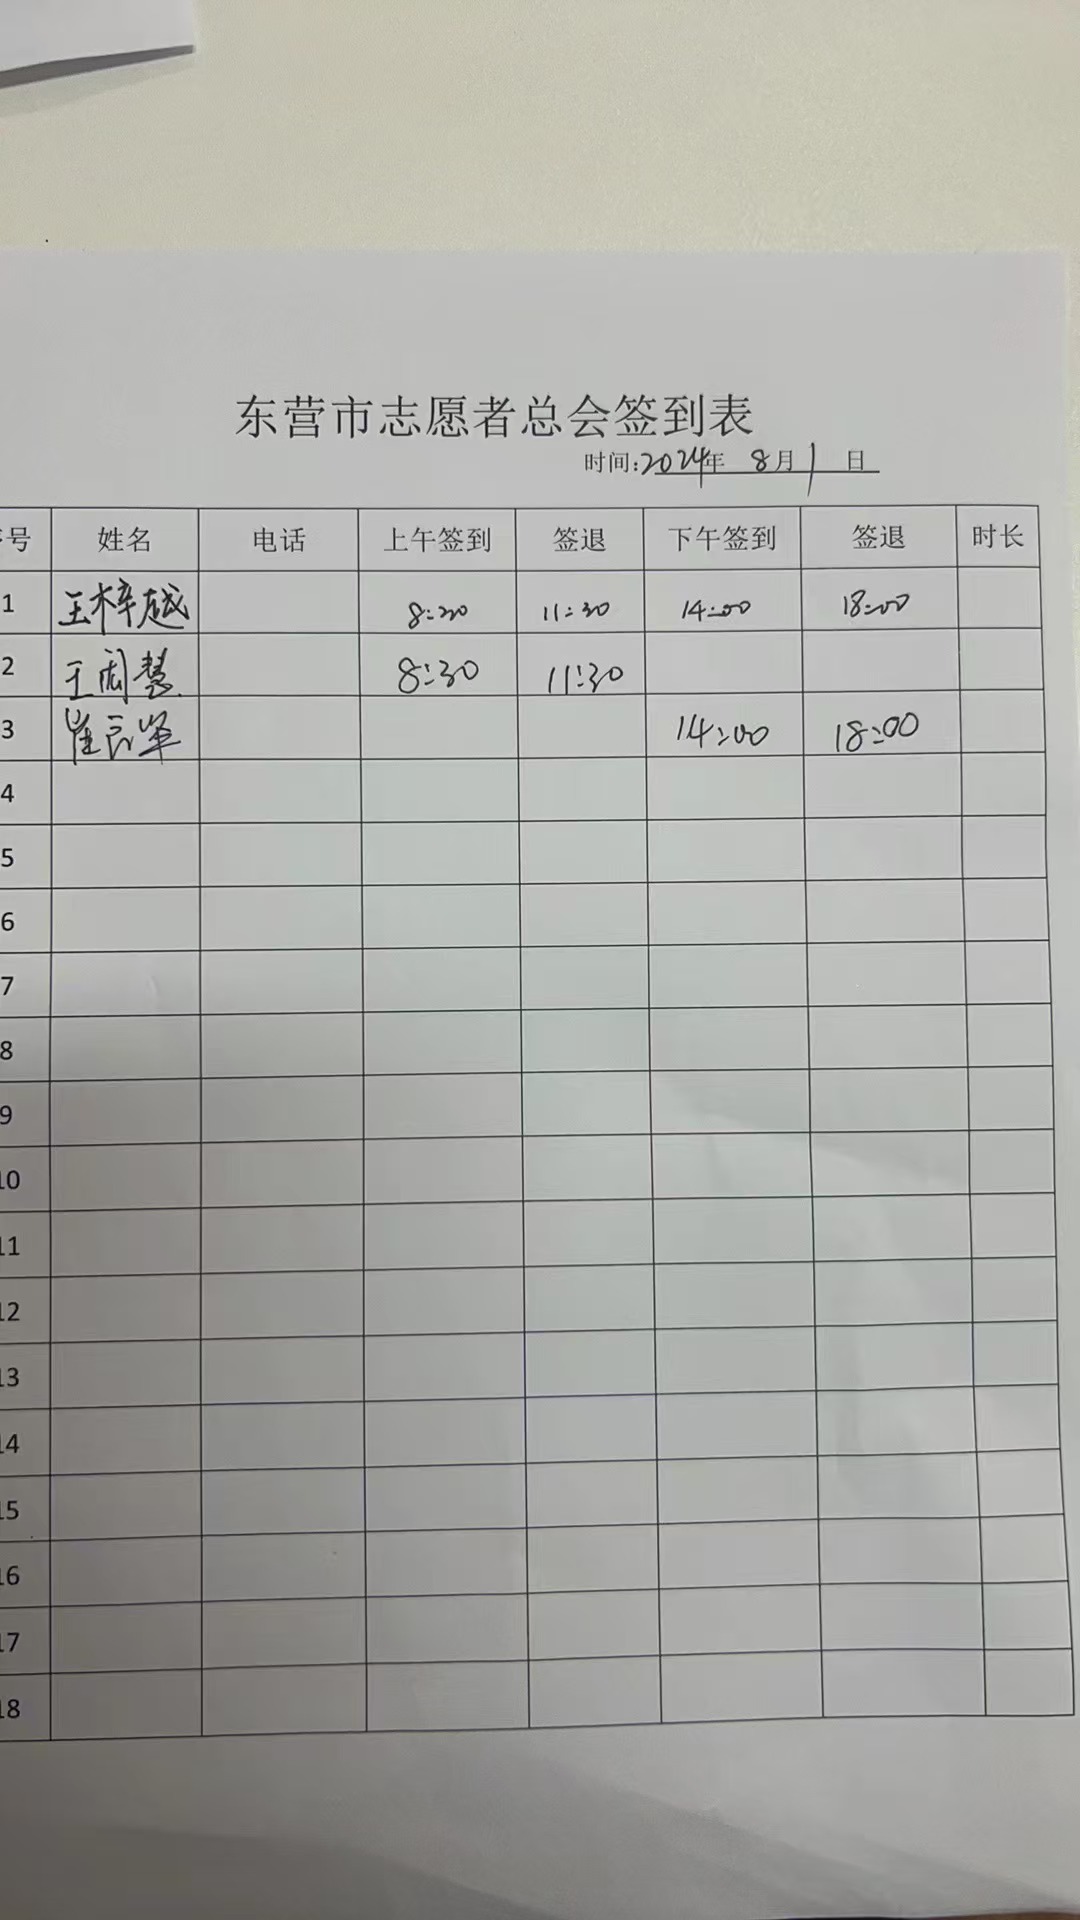 东营市志愿者总会签到表
时间:2024年 8月1日
号 姓名 电话 上午签到 签退 下午签到 签退 时长
1 王梓越 8:30 11:30 14:00 18:00
2 王闵慧 8:30 11:30
3 崔 14:00 18:00
4
5
6
7
8
9
10
11
12
13
14
15
16
17
18